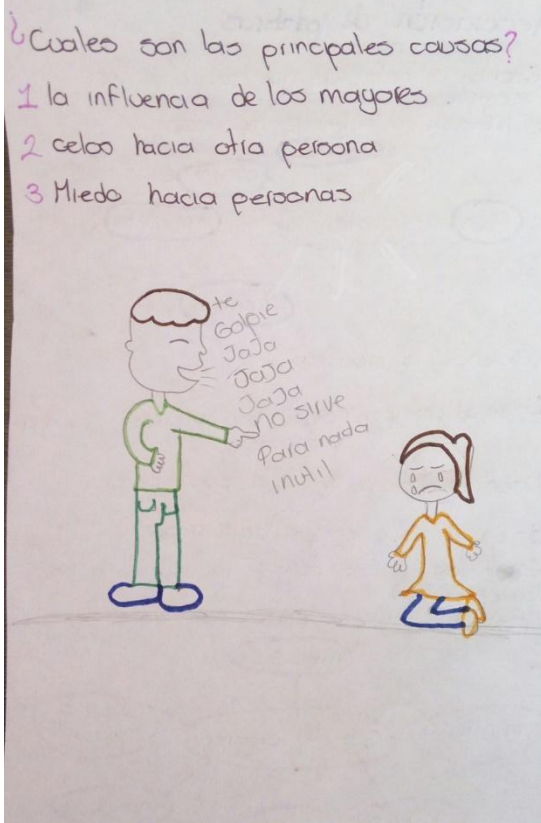 ¿Cuales son las principales causas?
1 la influencia de los mayores
2 celos hacia otra persona
3 Miedo hacia personas
te
Golpie
JaJa
JaJa
JaJa
no sirve
Para nada
inutil